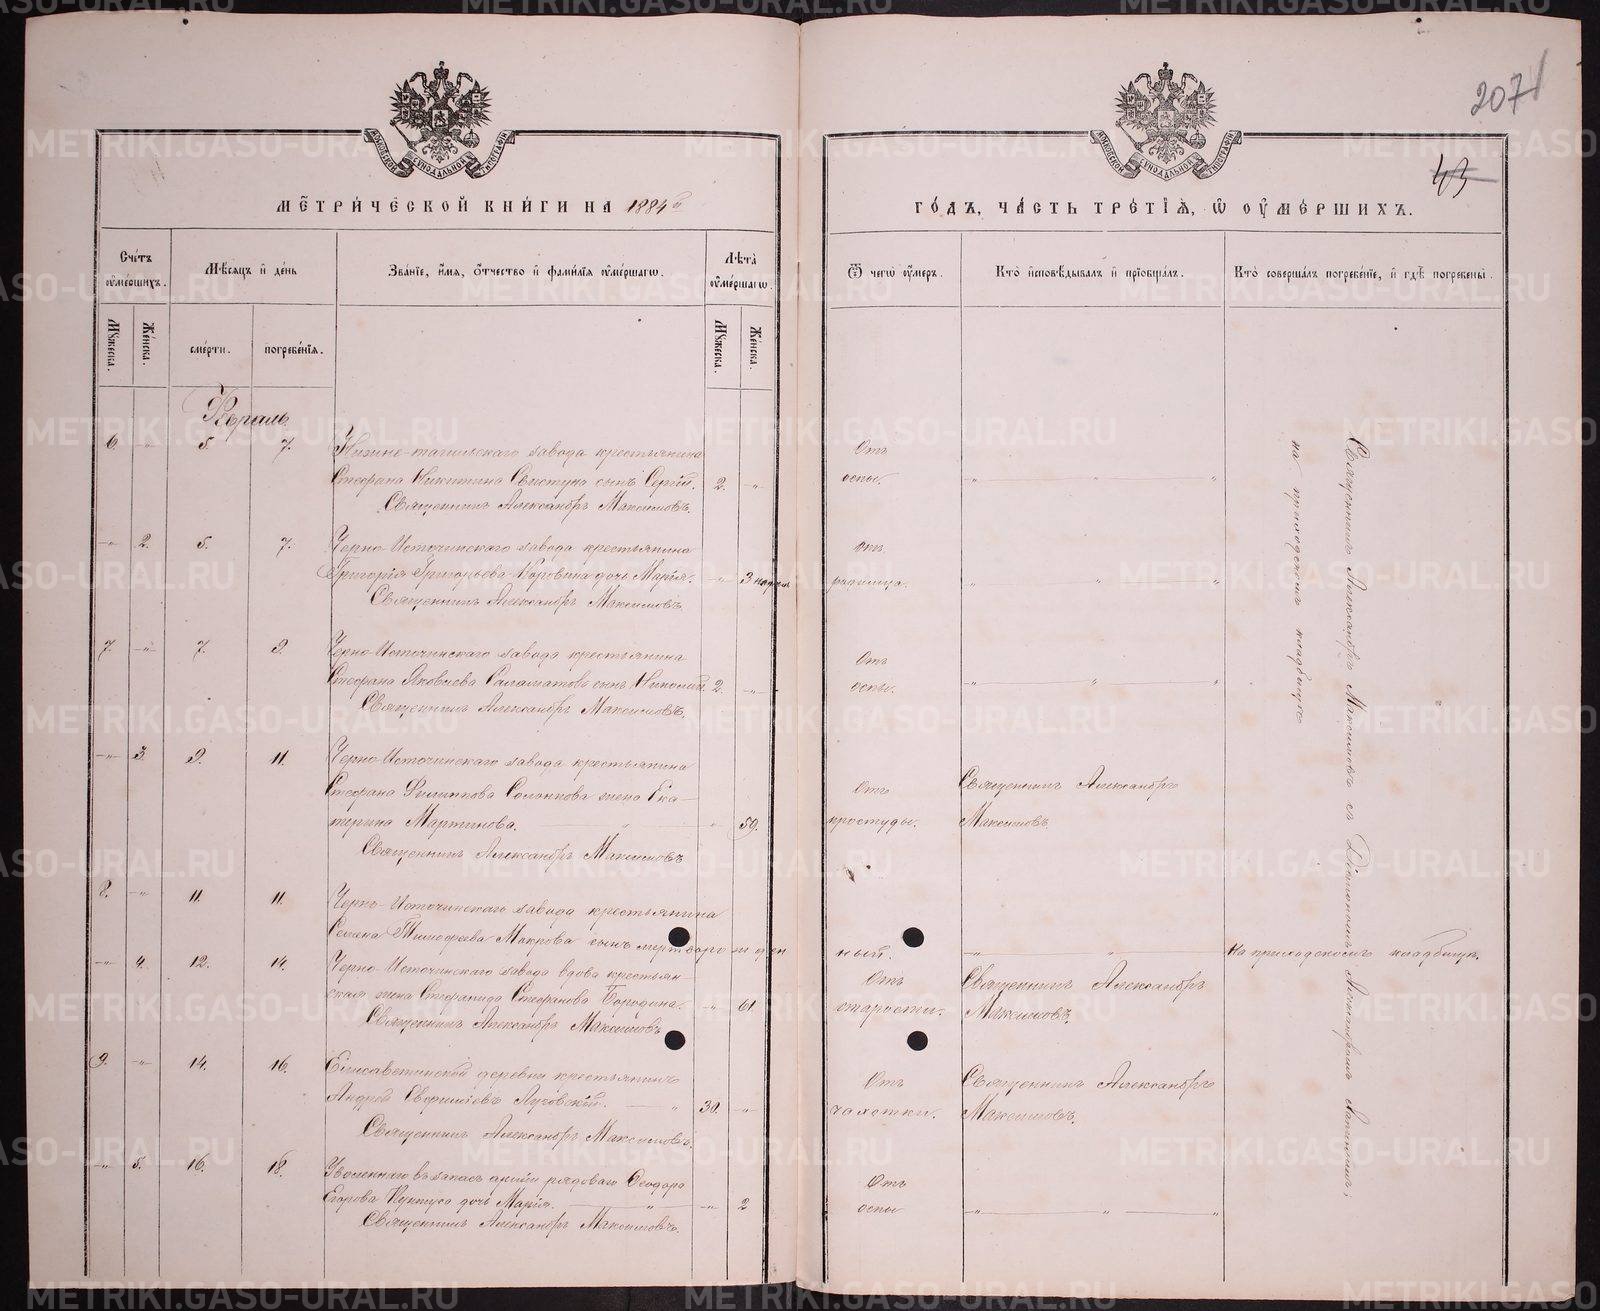 207
43
МОСКОВСКОЙ СѴНОДАЛЬНОЙ ТИПОГРАФІИ
МОСКОВСКОЙ СѴНОДАЛЬНОЙ ТИПОГРАФІИ
МЕТРИЧЕСКОЙ КНИГИ НА 1884й
ГОДЪ, ЧАСТЬ ТРЕТІѦ, Ѡ ОУМЕРШИХЪ.
Счетъ оумершихъ.
Мѣсяцъ и день
Званіе, имя, отчество и фамилія оумершагѡ.
Лѣта оумершагѡ.
Ѿ чегѡ оумеръ.
Кто исповѣдывалъ и пріобщалъ.
Кто совершалъ погребеніе, и гдѣ погребены.
Мужеска.
Женска.
смерти.
погребенія.
Мужеска.
Женска.
Февраль
6. „ 5. 7. Нижне-тагильскаго завода крестьянина Отъ
Стефана Никитина Свистуна сынъ Сергій. 2. „ оспы. „ „ „
Священникъ Александръ Максимовъ.
„ 2. 5. 7. Черно-Источинскаго завода крестьянина Отъ
Григорія Григорьева Коровина дочь Марія. „ 3 недѣли родимца. „ „ „
Священникъ Александръ Максимовъ.
7. „ 7. 9. Черно-Источинскаго завода крестьянина Отъ
Стефана Яковлева Саламатова сынъ Николай. 2. „ оспы. „ „ „
Священникъ Александръ Максимовъ.
„ 3. 9. 11. Черно-Источинскаго завода крестьянина Священникъ Александръ
Стефана Филиппова жена Ека- Отъ
терина Мартинова. „ „ 59. простуды. Максимовъ.
Священникъ Александръ Максимовъ
8. „ 11. 11. Черно-Источинскаго завода крестьянина
Семена Тимофеева Мокрова сынъ мертворожден ный. „ „ На приходскомъ кладбищѣ.
„ 4. 12. 14. Черно-Источинскаго завода вдова крестьян- Отъ Священникъ Александръ
ская жена Стефанида Стефанова Бородина. „ 61. старости. Максимовъ.
Священникъ Александръ Максимовъ
9. „ 14. 16. Елисаветинской деревни крестьянинъ Отъ Священникъ Александръ
Андрей Евфиміевъ „ 30. „ чахотки. Максимовъ.
Священникъ Александръ Максимовъ.
„ 5. 16. 18. Уволеннаго въ запасъ арміи рядоваго Ѳеодора Отъ
Егорова дочь Марія. „ „ 2 оспы „ „ „
Священникъ Александръ Максимовъ.
Священникъ Александръ Максимовъ съ Діакономъ
на приходскомъ кладбищѣ
METRIKI.GASO-URAL.RU